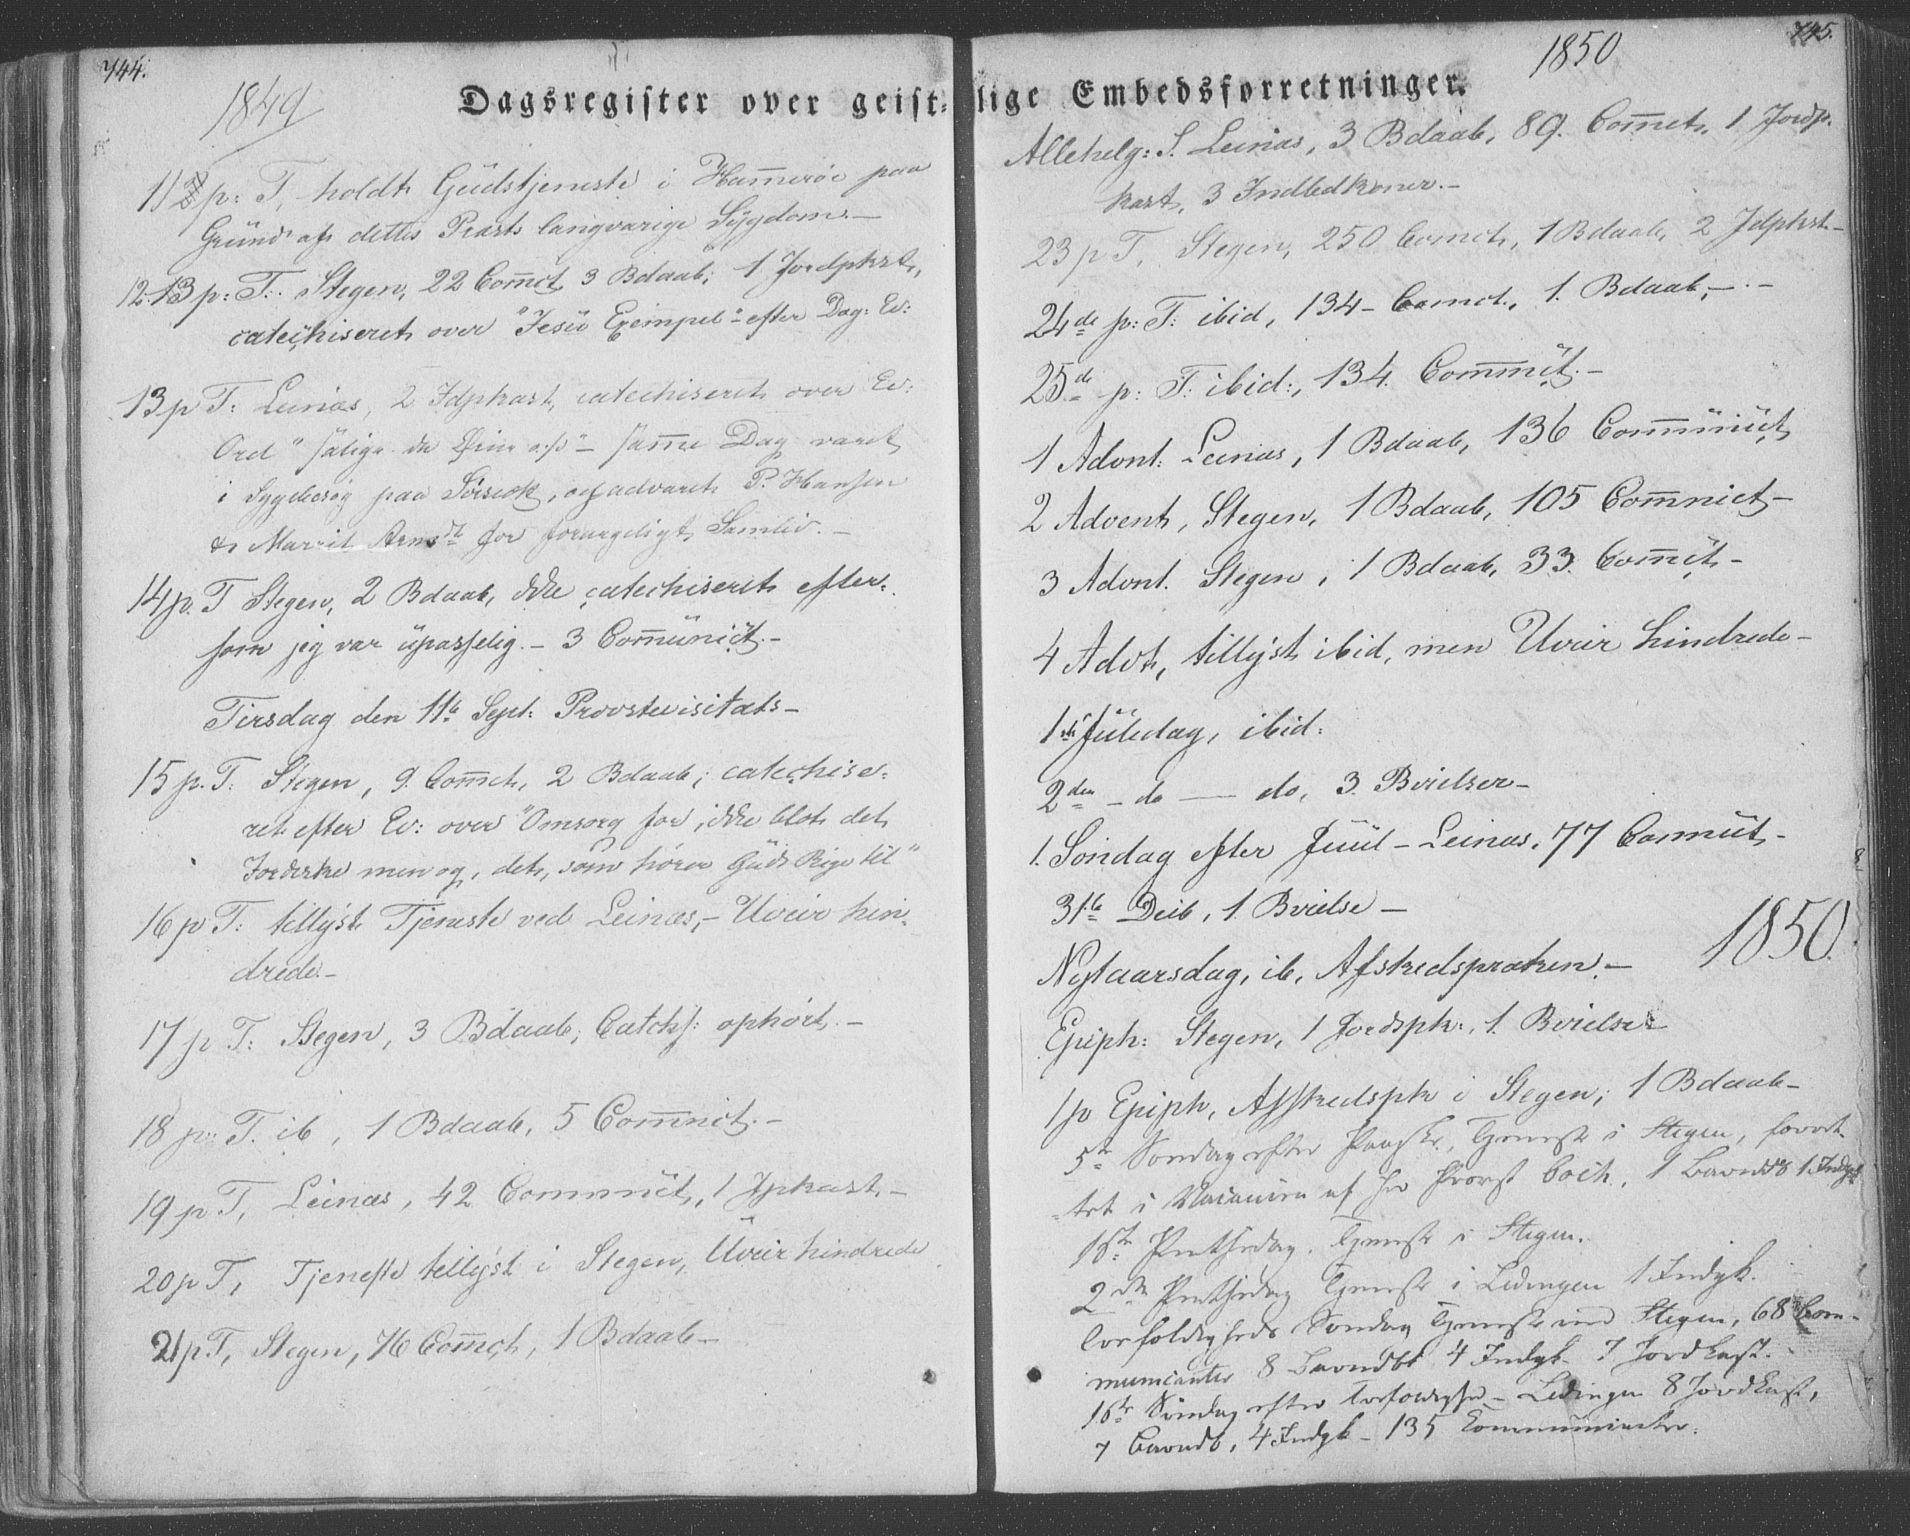 744.
1849
Dagsregister over geist-
11 p: T, holdt Gudstjeneste i Hammerøe paa
Grund af dettes Præsts langvarige Sygdom.—
12. 13 p: T. Stegen, 22 Com̅ct, 3 Bdaab, 1 Jordpkst,
catechiseret over "Jesu Exempel" efter Dag: Ev:
13 p T: Leines, 2 Jdpkast, catechiseret over Ev:
Ord "salige de Øine &" — sam̅e Dag været
i Sygebesøg paa, og advaret P. Hansen
& Marrit Arnsdt for forargeligt Samliv.—
14 p. T Stegen, 2 Bdaab, ikke catechiseret efter-
som jeg var upasselig. — 3 Com̅unict.—
Tirsdag den 11te Sept: Provstevisitats—
15 p. T: Stegen, 9. Com̅ct, 2 Bdaab; catechise-
ret efter Ev: over "Omsorg for, ikke blot det
Jordiske men og, det, som hører Guds Rige til"
16 p T: tillyst Tjeneste ved Leines, — Uveir hin-
drede.—
17 p T: Stegen, 3 Bdaab; Catchs: ophørt.—
18 p: T. ib, 1 Bdaab, 5 Com̅nict.—
19 p T, Leines, 42 Commnict, 1 Jpkast,—
20 p T, Tjeneste tillyst i Stegen, Uveir hindrede
21 p T, Stegen, 76 Com̅ct, 1 Bdaab—
745.
1850
lige Embedsforretninger.
Allehelg: S. Leines, 3 Bdaab, 89. Com̅ct, 1 Jordp.
kast, 3 Indledkoner.—
23 p T, Stegen, 250 Comct, 1 Bdaab, 2 Jdpkst—
24de p: T: ibid, 134 — Comct, 1. Bdaab,—.—
25de p: T. ibid:, 134. Com̅uct.—
1 Advnt: Leines, 1 Bdaab, 136 Com̅unict
2 Advent, Stegen, 1 Bdaab, 105 Com̅nict—
3 Advnt. Stegen, 1 Bdaab, 33. Com̅ct—
4 Advt, tillyst ibid, men Uveir hindrede—
1ste Juledag, ibid:
2den — do — do, 3. Bvielser—
1. Søndag efter Juul — Leines, 77 Comuct—
31te Decb, 1. Bvielse —
1850.
Nytaarsdag, ib, Afskedspræken.—
Epiph: Stegen, 1 Jordspk:, 1. Bvielse
1 p Epiph, Afskedspk i Stegen; 1 Bdaab—
5te Søndag efter Paaske, Tjeneste i Stegen, forret-
tet i Vacancen af Hr Provst Coch, 1 Barnedb 1 Indgk
1ste Pintsedag. Tjeneste i Stegen.
2den Pintsedag Tjeneste i Ledingen 1 Indgk.
Trefoldigheds Søndag Tjeneste ved Stegen, 68 Com-
municanter 8 Barndb 4 Indgk. 7 Jordkast.
1ste Søndag efter Trefoldighed — Ledingen 8 Jordkast,
7 Barndb, 4 Indgk — 135 Kommunicanter.